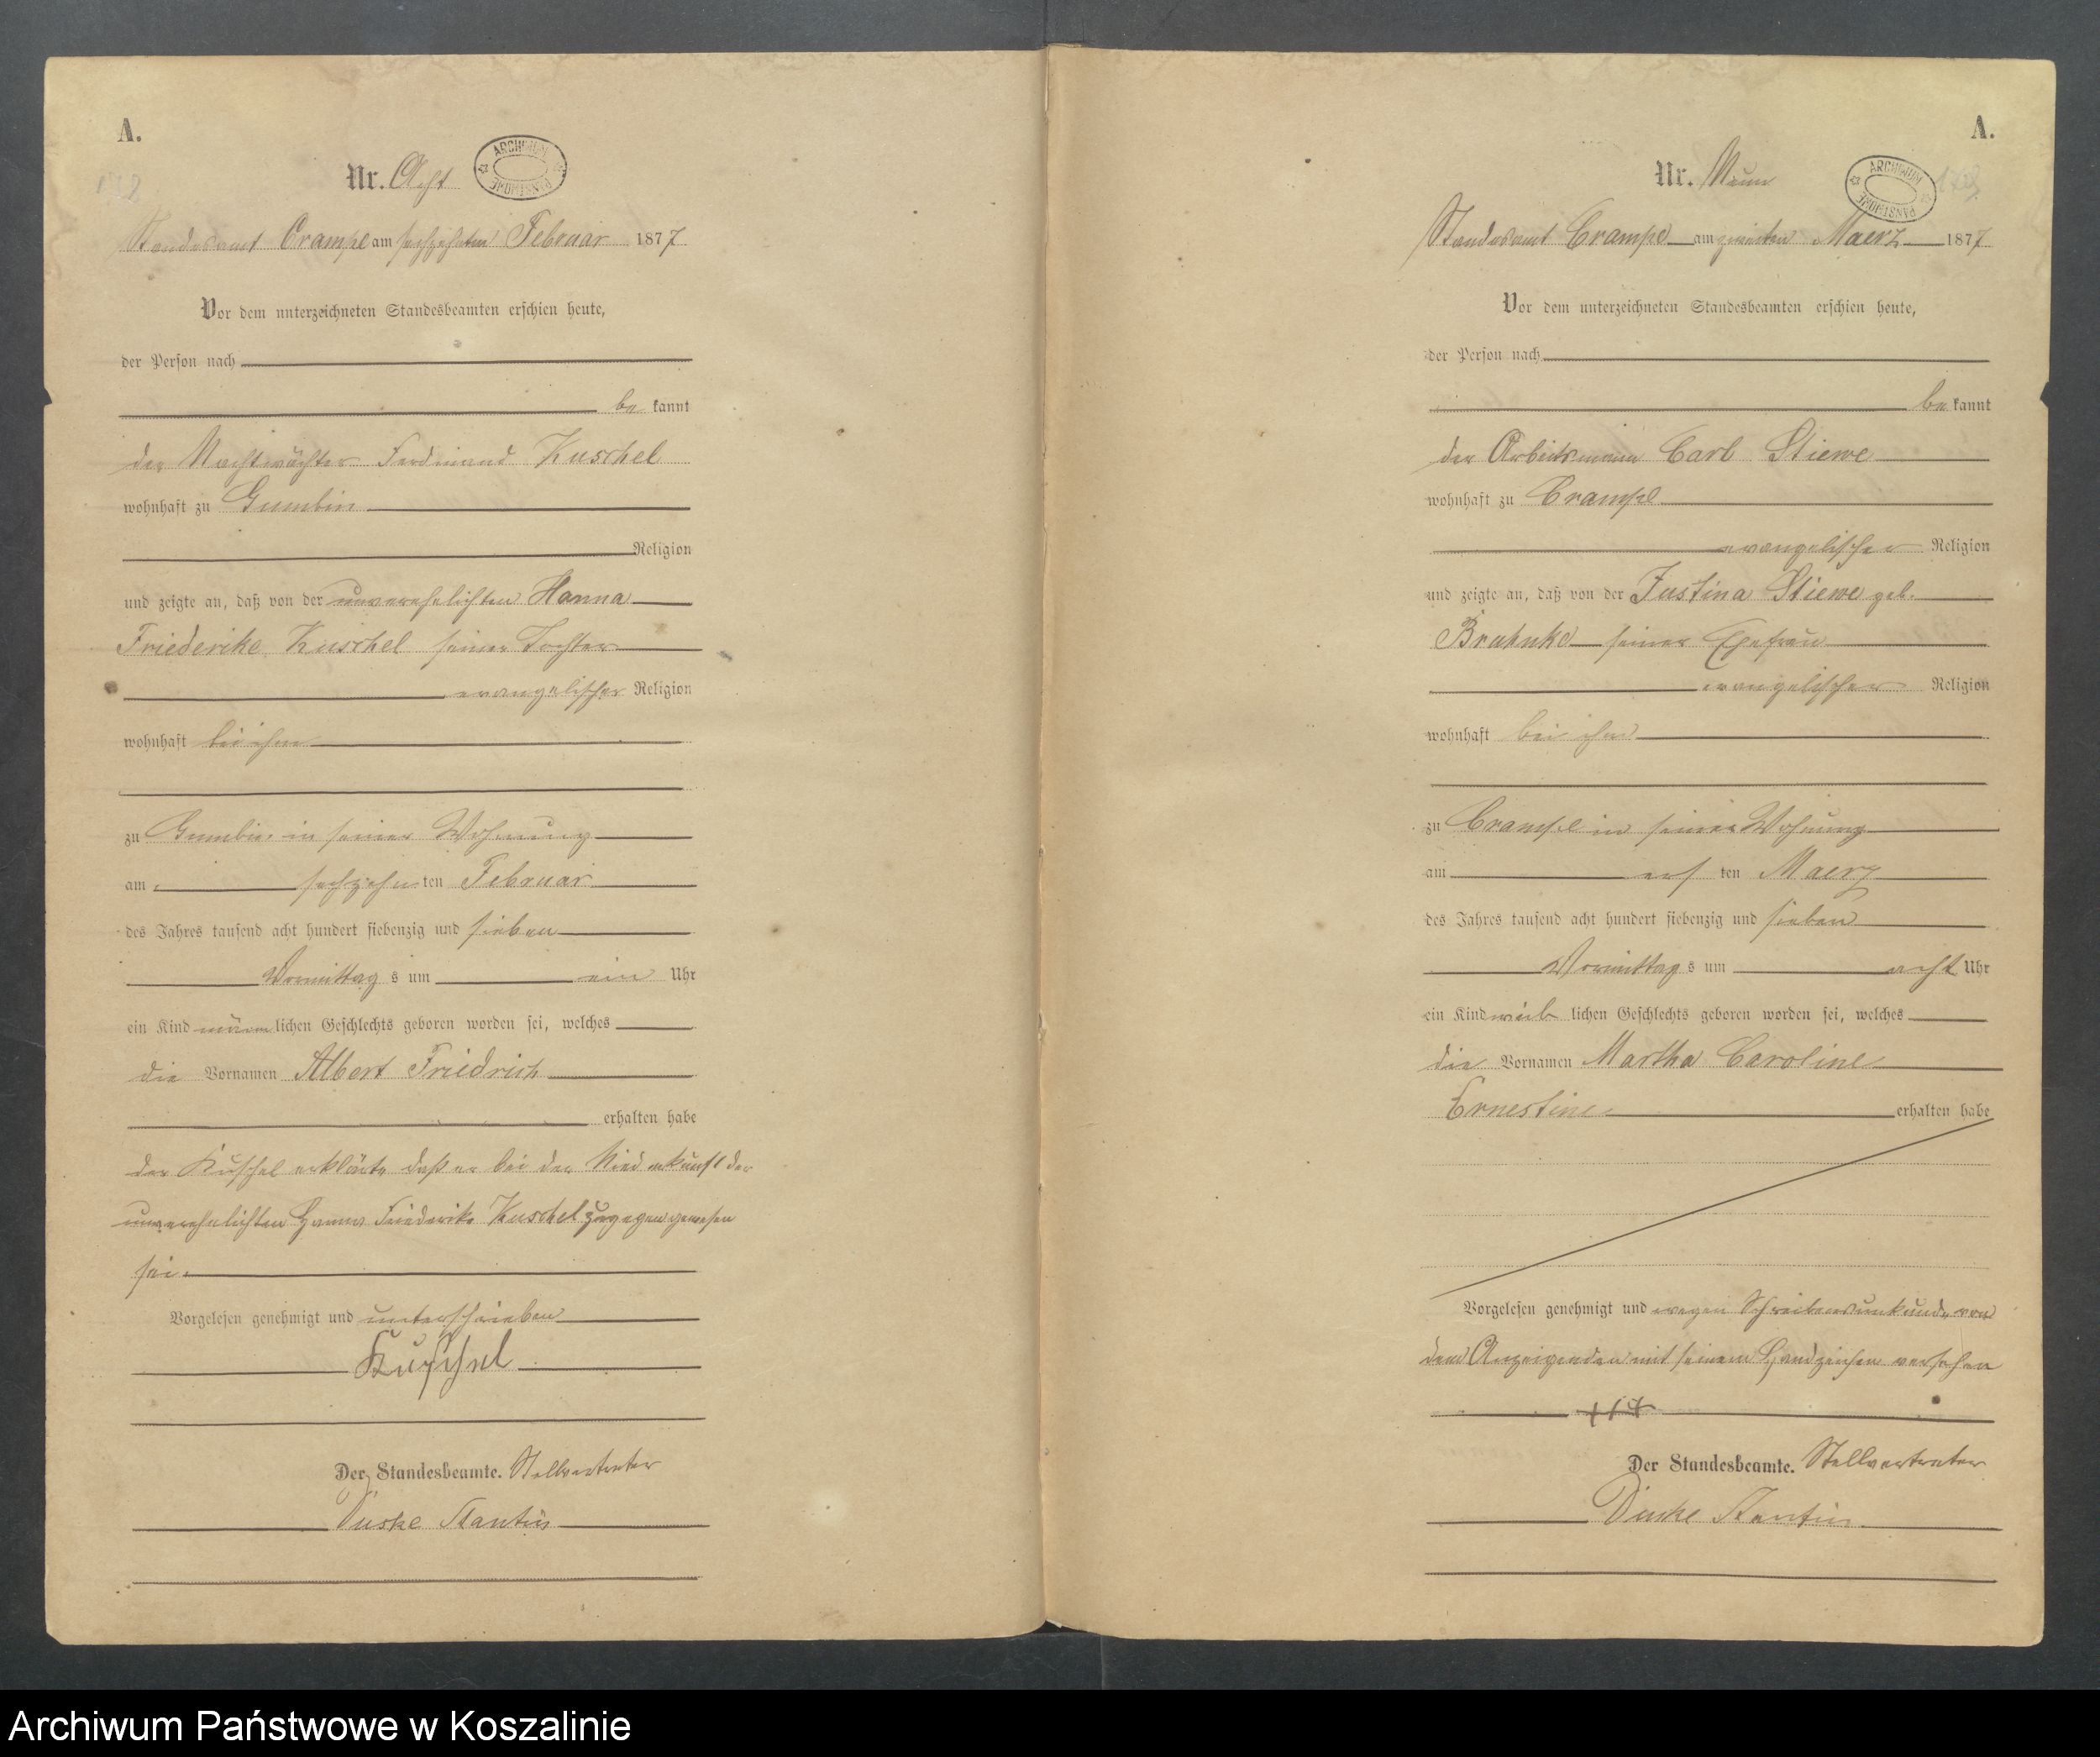 A.
Nr. Acht
ARCHIWUM PAŃSTWOWE
Standesamt Crampe am sechzehnten Februar 1877
Vor dem unterzeichneten Standesbeamten erschien heute,
der Person nach
be kannt
der Nachtwächter Ferdinand Kuschel
wohnhaft zu Gumbin
Religion
und zeigte an, daß von der unverehelichten Hanna
Friederike Kuschel seiner Tochter
evangelischer Religion
wohnhaft bei ihm
zu Gumbin in seiner Wohnung
am sechzehn ten Februar
des Jahres tausend acht hundert siebenzig und sieben
Vormittag s um ein Uhr
ein Kind männ lichen Geschlechts geboren worden sei, welches
die Vornamen Albert Friedrich
erhalten habe
der Kuschel erklärte daß er bei der Niederkunft der
unverehelichten Hanna Friederike Kuschel zugegen gewesen
sei.
Vorgelesen genehmigt und unterschrieben
Kuschel
Der Standesbeamte. Stellvertreter
A.
Nr. Neun
ARCHIWUM PAŃSTWOWE
Standesamt Crampe am zweiten Maerz 1877
Vor dem unterzeichneten Standesbeamten erschien heute,
der Person nach
be kannt
der Arbeitsmann Carl Stiewe
wohnhaft zu Crampe
evangelischer Religion
und zeigte an, daß von der Justina Stiewe geb.
Brahnke seiner Ehefrau
evangelischer Religion
wohnhaft bei ihm
zu Crampe in seiner Wohnung
am ers ten Maerz
des Jahres tausend acht hundert siebenzig und sieben
Vormittag s um acht Uhr
ein Kind weib lichen Geschlechts geboren worden sei, welches
die Vornamen Martha Caroline
Ernestine erhalten habe
Vorgelesen genehmigt und wegen Schreibensunkunde von
dem Anzeigenden mit seinem Handzeichen versehen
+++
Der Standesbeamte. Stellvertreter
Archiwum Państwowe w Koszalinie